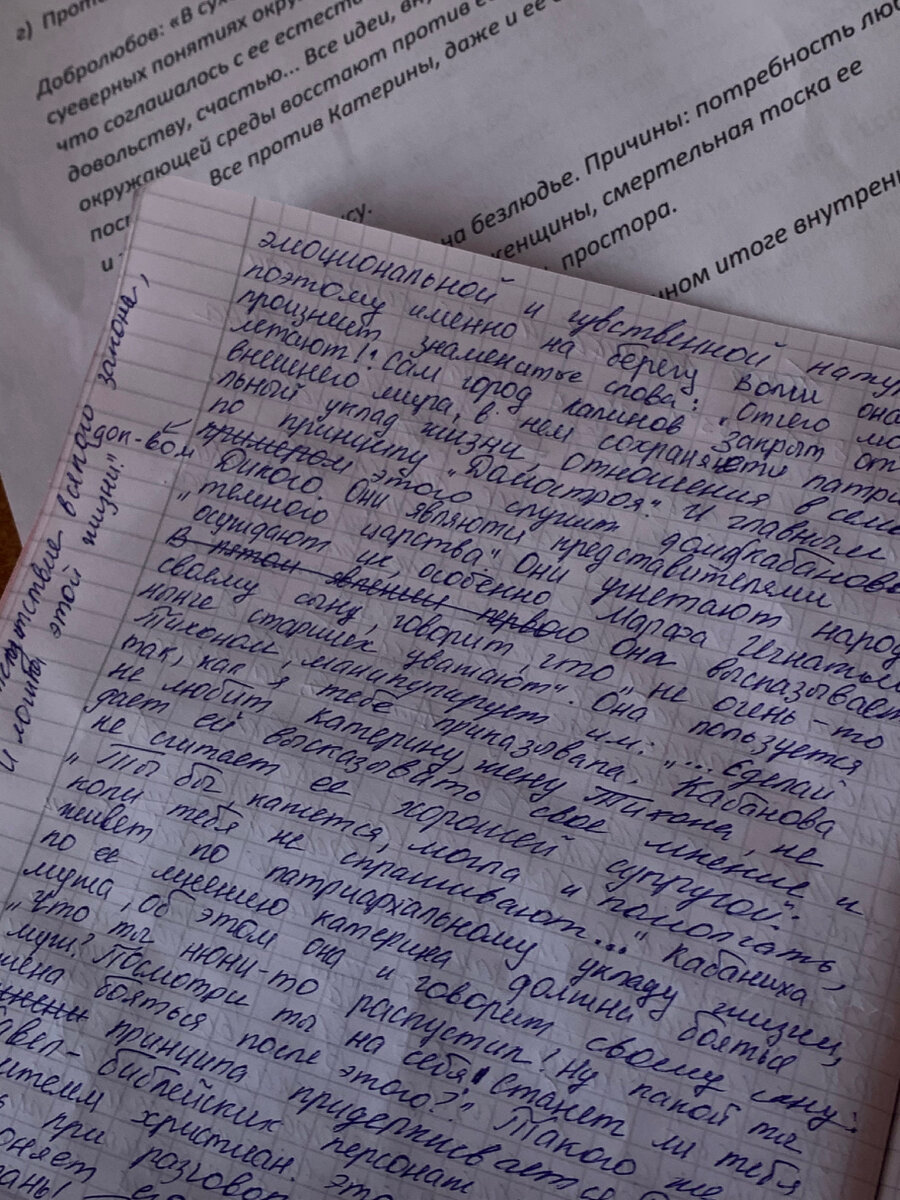 г) Проти
Добролюбов: «В сух
суеверных понятиях окру
что соглашалось с ее естест
довольству, счастью... Все идеи, вну
окружающей среды восстают против ее
Все против Катерины, даже и ее с
на безлюдье. Причины: потребность люб
женщины, смертельная тоска ее
простора.
ном итоге внутренн
эмоциональной и чувственной натур
поэтому именно на берегу Волги она
произнесет знаменитые слова: „Отчего лю
летают!" Сам город Калинов закрыт от
внешнего мира, в нем сохраняется патри
льный уклад жизни, отношения в семь
по принципу „Домостроя". И главным
доп-во
примером этого служит дом Кабановы
Дикого. Они являются представителями
„темного царства". Они угнетают народ
осуждают их, особенно Марфа Игнатьев
В пятом явлении первого Она высказывает
своему сыну, говорит, что „не очень-то
нонче старших уважают". Она пользуется
Тихоном, манипулирует им: „...сделай
так, как я тебе приказывала." Кабанова
не любит Катерину, жену Тихона, не
дает ей высказывать свое мнение и
не считает ее хорошей супругой:
„Ты бы, кажется, могла и помолчать,
коли тебя не спрашивают..." Кабаниха
живет по патриархальному укладу жизни,
по ее мнению Катерина должна бояться
мужа, об этом она и говорит своему сыну:
„Что ты нюни-то распустил! Ну какой ты
муж? Посмотри ты на себя! Станет ли тебя
жена бояться после этого?" Такого же
принципа придерживается
авел- библейский персонаж
ителем христиан.
при разговор
отсутствие всякого закона,
и логика этой жизни."